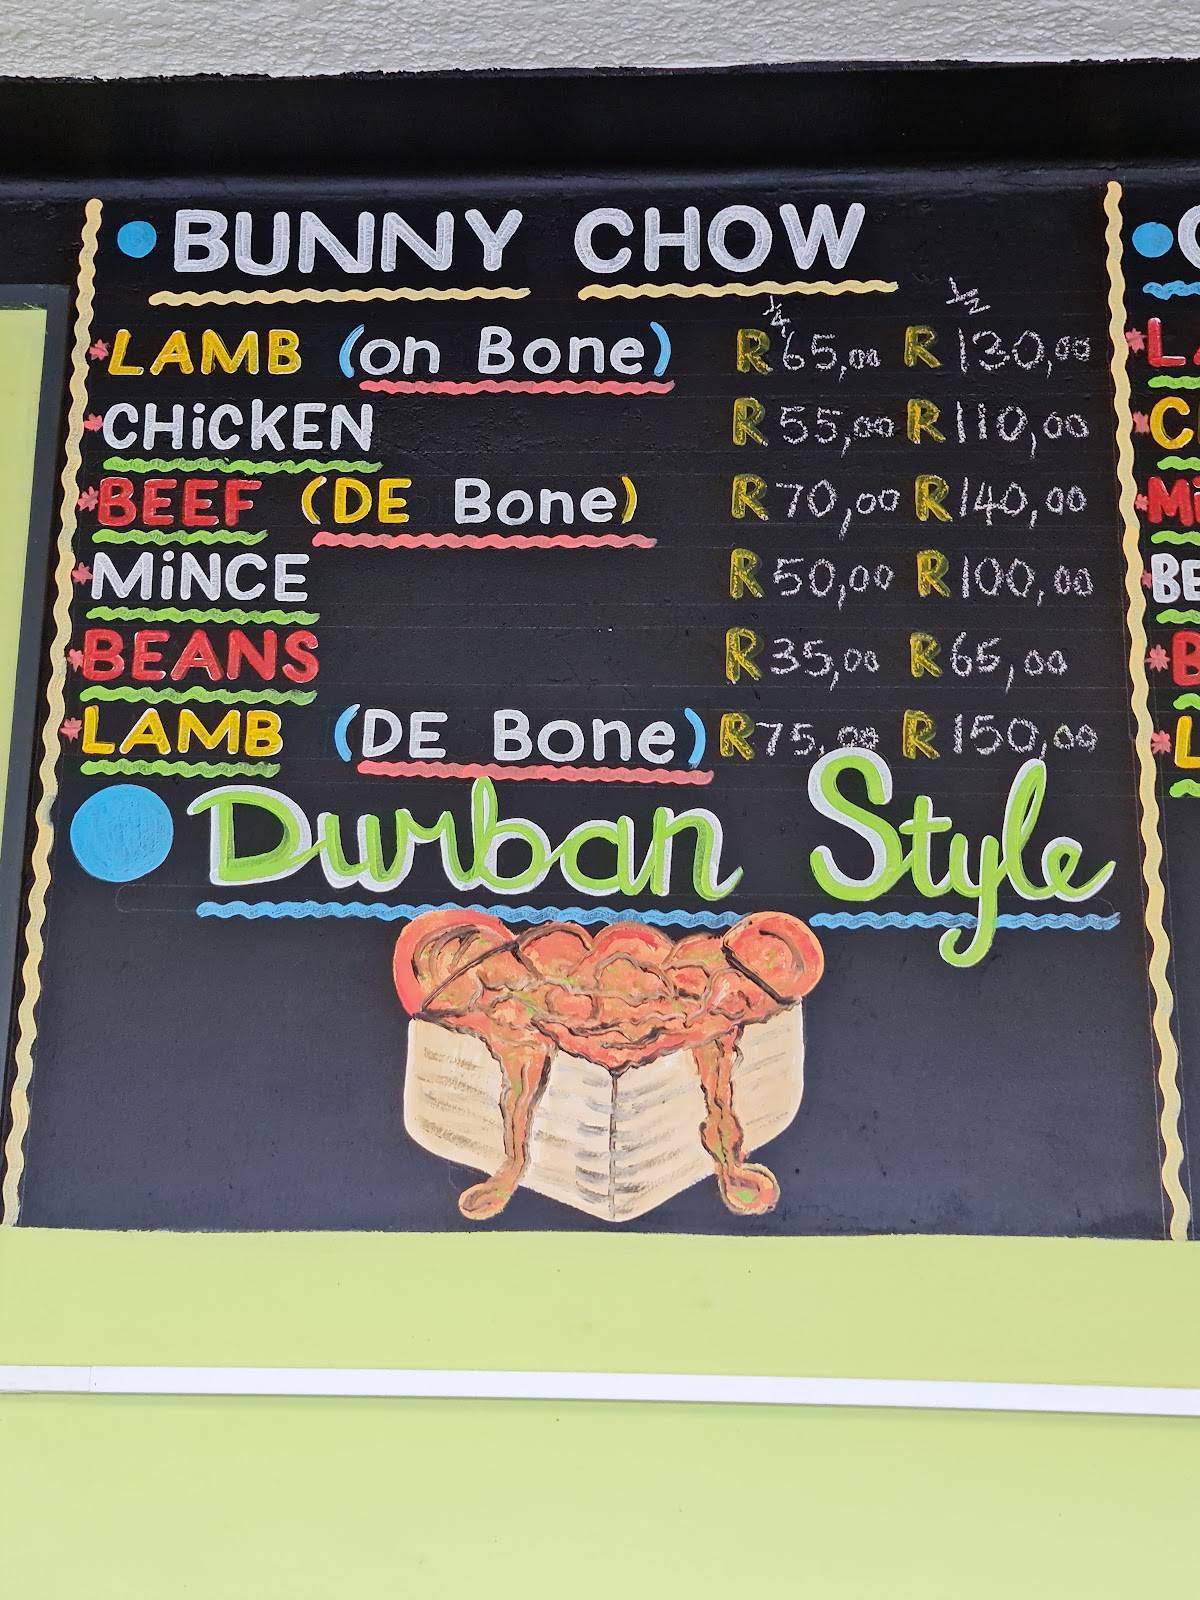 BUNNY CHOW
1/4 1/2
LAMB (on Bone) R 65,00 R 130,00
CHiCKEN R 55,00 R 110,00
BEEF (DE Bone) R 70,00 R 140,00
MiNCE R 50,00 R 100,00
BEANS R 35,00 R 65,00
LAMB (DE Bone) R 75,00 R 150,00
Durban Style